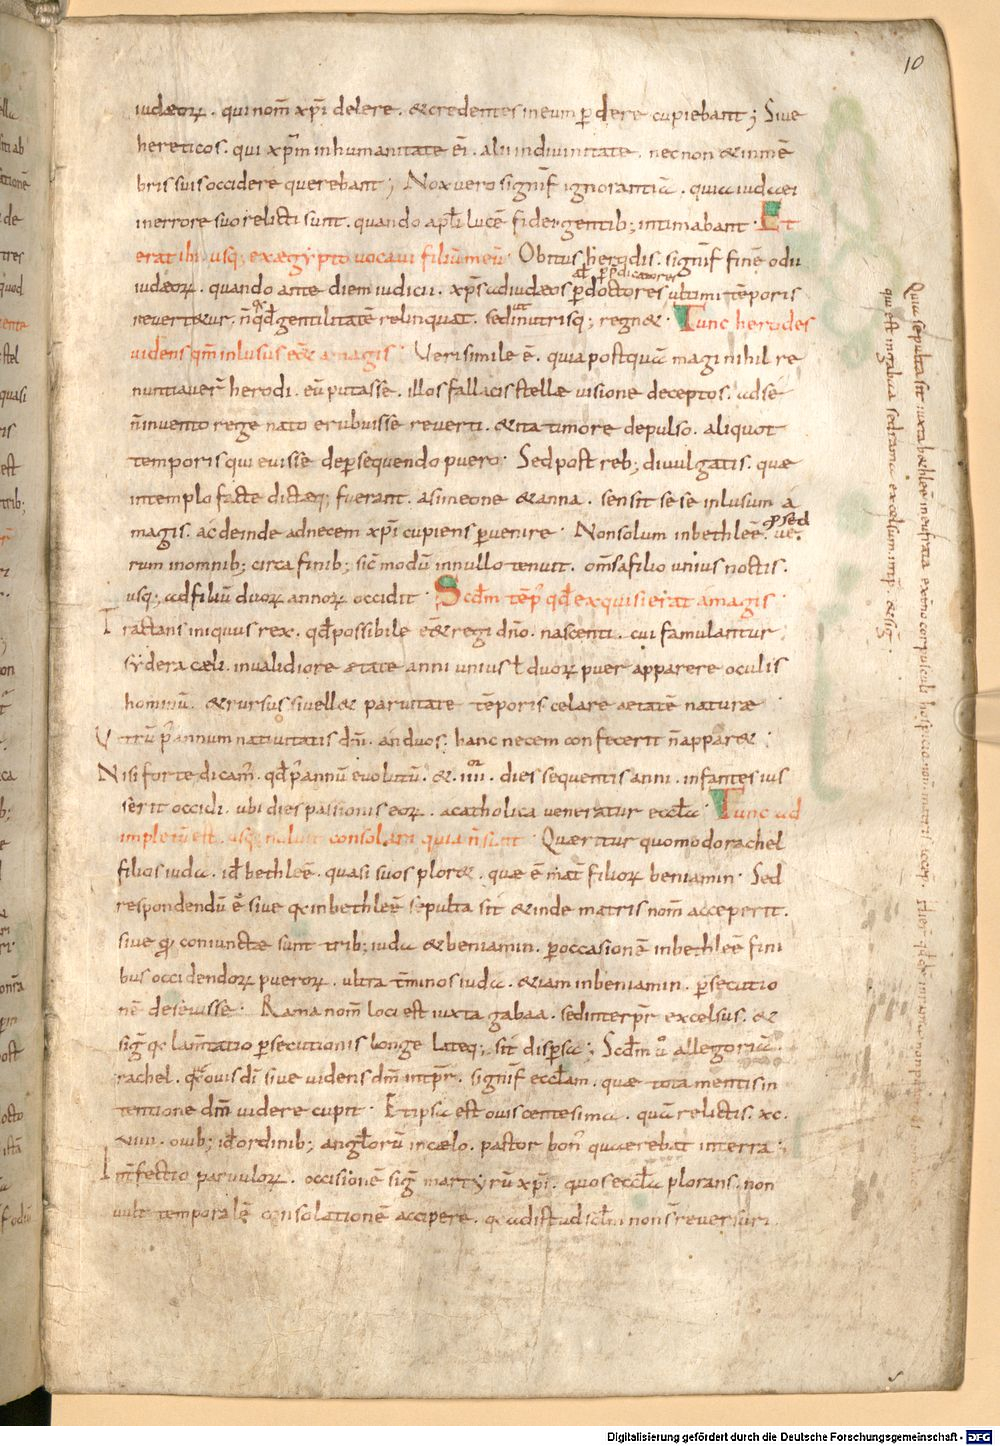 10
iudæoꝝ. qui nom̄ xp̄i delere. & credentes in eum ꝑdere cupiebant; Siue
hereticos. qui xp̄m in humanitate ei. alii in diuinitate. nec non & in mē
bris suis occidere querebant; Nox uero signif̄ ignorantiā. quia iudaei
in errore suo relicti sunt. quando apl̄i lucē fidei gentib; intimabant. Et
erat ibi usq; ex ægypto uocaui filiū meū. Obitus herodis. signif̄ finē odii
ut p̄dicatorū
iudæoꝝ. quando ante diem iudicii. xp̄s ad iudæos ꝑ doctores ultimi tēporis
reuert&ur. n̄ qđ gentilitatē relinquat. sed in utrisq; regn&. Tunc herodes
uidens qm̄ inlusus eēt a magis. Verisimile ē. quia postquā magi nihil re
nuntiauer̄ herodi. eū putasse. illos fallacis stellæ uisione deceptos. ad sē
n̄ inuento rege nato erubuisse reuerti. & ita timore depulso. aliquot
temporis quieuisse de ꝑsequendo puero. Sed post reb; diuulgatis. quæ
in templo facte dictæq; fuerant. a simeone & anna. sensit se se inlusum a
magis. ac deinde ad necem xp̄i cupiens ꝑuenire. Non solum in bethleē. ue
p sed
rum in omnib; circa finib; sic̄ modū in nullo tenuit. om̄s a filio unius noctis.
usq; ad filiū duoꝝ annoꝝ occidit. Scdm̄ tēp̄ qđ exquisierat a magis.
Tractans iniquus rex. qđ possibile eēt regi dn̄o. nascenti. cui famulantur
sydera cæli. inualidiore ætate anni unius ł duoꝝ puer apparere oculis
hominū. & rursus si uell& paruitate tēporis celare aetatē naturæ.
Vtrū p̄ annum natiuitatis dn̄i. an duos. hanc necem confecerit n̄ appar&.
Nisi forte dicam̄. qđ p̄ annū euolutū. & .iiii. dies sequentis anni. infantes ius
serit occidi. ubi dies passionis eoꝝ. a catholica ueneratur eccl̄a. Tunc ad
impletū est. usq; noluit consolari quia n̄ sunt. Quæritur quomodo rachel
filios iuda. id bethleē. quasi suos plor&. quæ ē mat̄ filioꝝ beniamin. Sed
respondendū ē siue qa in bethleē sepulta sit & inde matris nom̄ acceperit.
siue qa coniunctæ sunt trib; iuda & beniamin. ꝑ occasionē in bethleē fini
bus occidendoꝝ pueroꝝ. ultra t̄minos iuda. & iam in beniamin. ꝑsecutio
nē deseuisse. Rama nom̄ loci est iuxta gabaa. sed interpr̄ excelsus. &
sig̅ qa lam̄tatio ꝑsecutionis longe lateq; sit dispersa; Scdm̄ ū allegoriā.
rachel. q̄ ouis di siue uidens dm̄ intpr̄. signif̄ eccl̄am. quæ tota mentis in
tentione dm̄ uidere cupit. Et ipsa est ouis centesima. quā relictis. xc.
&uiiii. ouib; id ordinib; angl̄orū in cælo. pastor bon̄ quærebat in terra;
Int̄fectio paruuloꝝ. occisionē sig̅ martyrū xp̄i. quos eccl̄a plorans. non
uult temporalē consolationē accipere. qa ad ist ad scl̄m non s̄ reuersuri
Quia sepulta sit iuxta bethleē in eufrata
qui est in gabaa sed rama excelsum intp̄. & sig̅
Digitalisierung gefördert durch die Deutsche Forschungsgemeinschaft - DFG